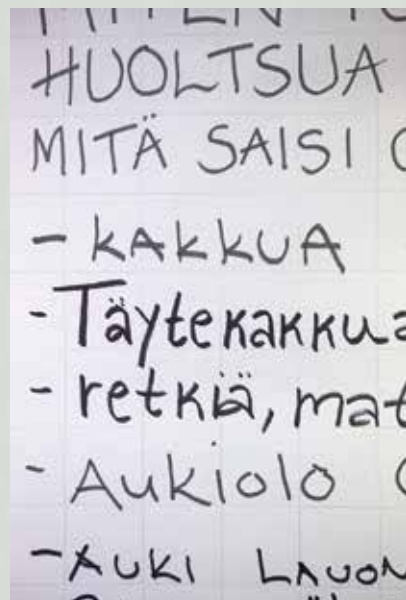 HUOLTSUA
MITÄ SAISI
- KAKKUA
- Täytekakkua
- retkiä, mat
- Aukiolo
- AUKI LAUON